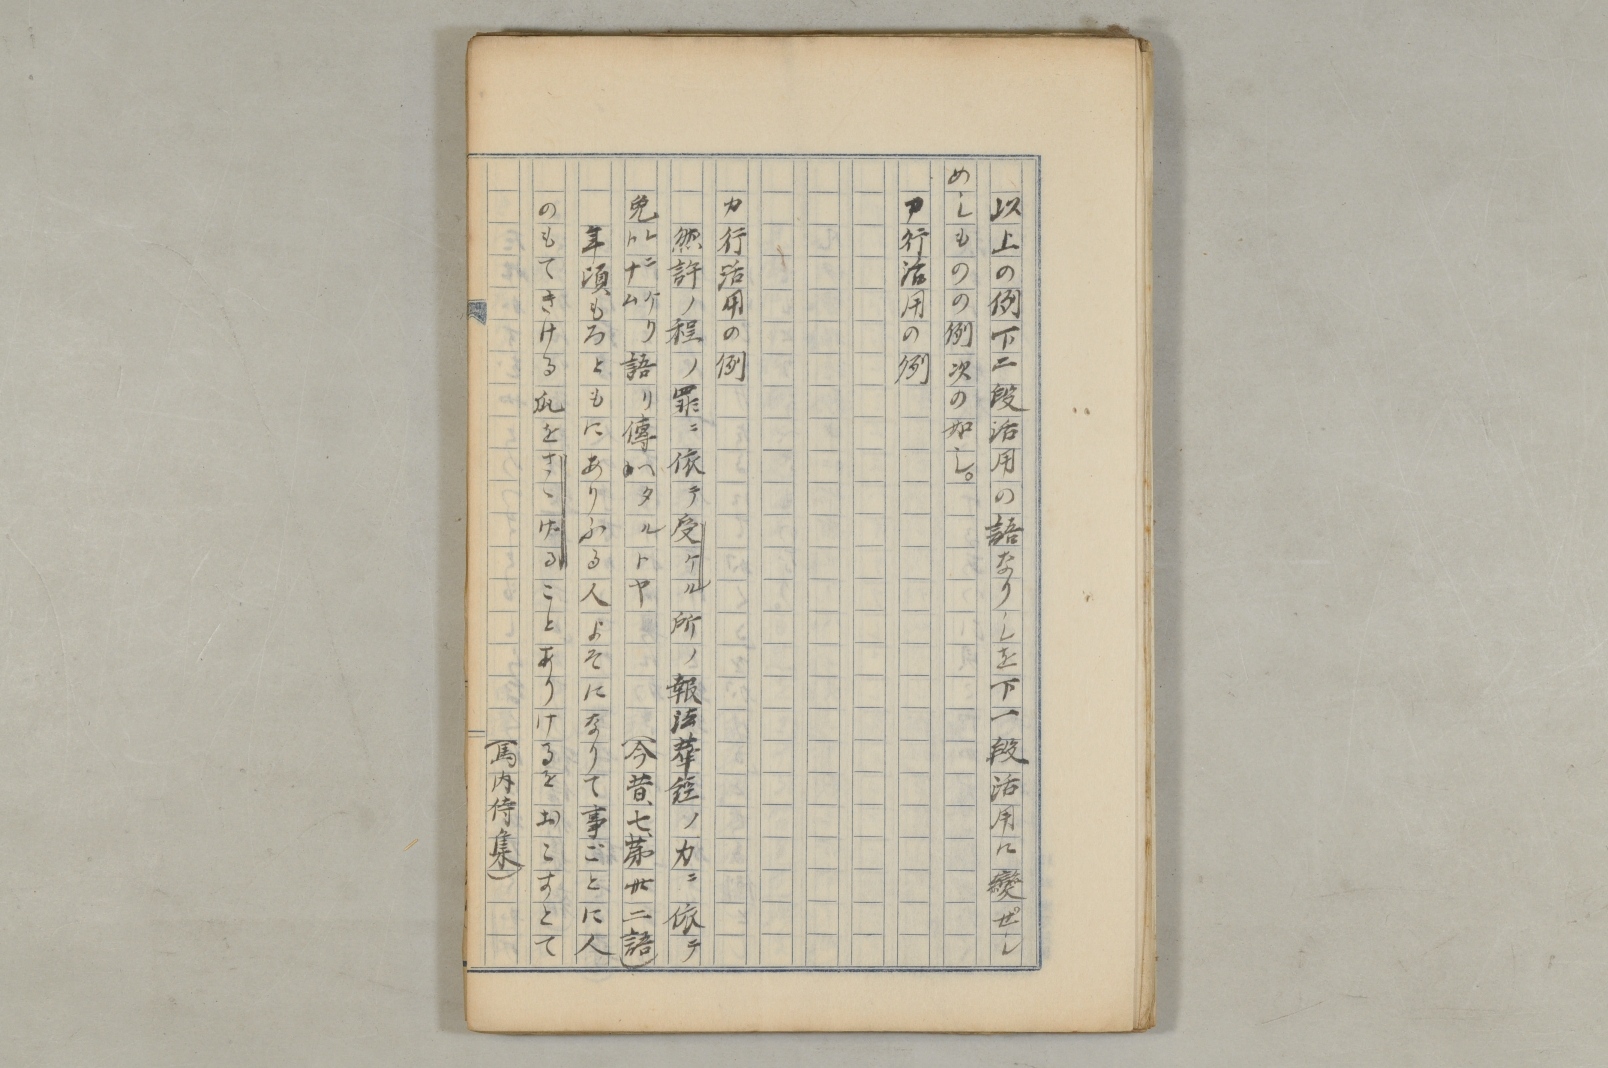 以上の例下二段活用の語なりしを下一段活用に變ぜし
めしものの例次の如し。
カ行活用の例
カ行活用の例
然許ノ程ノ罪ニ依テ受ケル所ノ報法華經ノ力ニ依テ
免レニケリトナム語リ傳ヘタルトヤ(今昔、七、第廿二語)
年頃もろともにありふる人よそになりて事ごとに人
のもてきける瓜をさゝげることありけるをおこすとて
(馬内侍集)